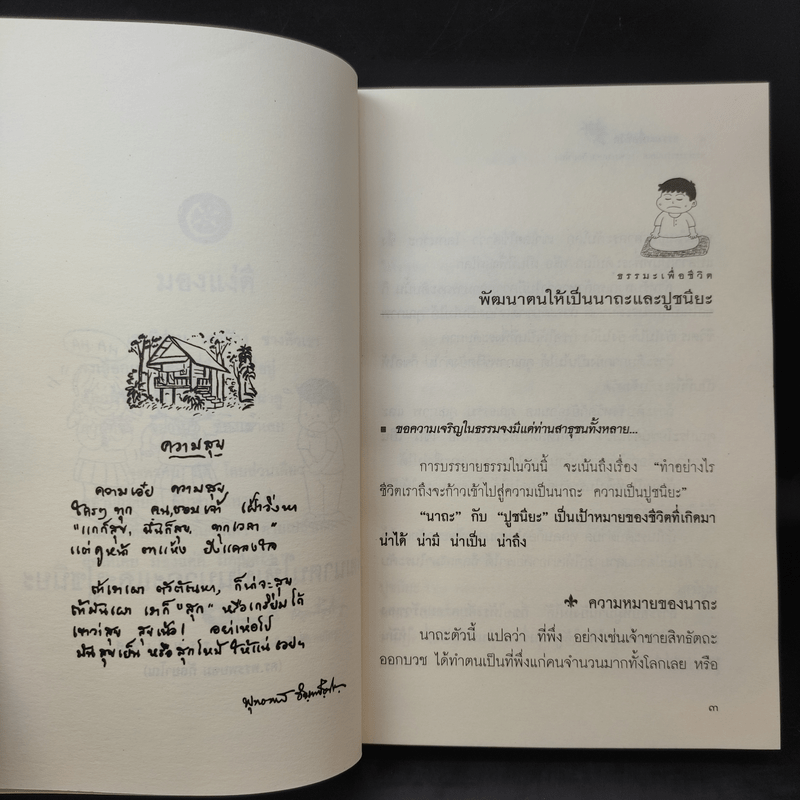 ความสุข
ความเอ๋ย ความสุข
ใครๆ ทุก คน,ชอบเจ้า เฝ้าวิ่งหา
"แกก็สุข, ฉันก็สุข, ทุกเวลา"
แต่ดูหน้า ตาแห้ง ยังแคลงใจ
ถ้าเราเผา ตัวตัณหา, ก็น่าจะสุข
ถ้ามันเผา เราก็ "สุก" หรือเกรียมได้
เขาว่าสุข สุขเน้อ! อย่าเห่อไป
มันสุขเย็น หรือสุกไหม้ ให้แน่ เอยฯ
พุทธทาส อินทปัญโญ
ธรรมะเพื่อชีวิต
พัฒนาตนให้เป็นนาถะและปูชนียะ
▪ ขอความเจริญในธรรมจงมีแด่ท่านสาธุชนทั้งหลาย...
การบรรยายธรรมในวันนี้ จะเน้นถึงเรื่อง "ทำอย่างไร
ชีวิตเราถึงจะก้าวเข้าไปสู่ความเป็นนาถะ ความเป็นปูชนียะ"
"นาถะ" กับ "ปูชนียะ" เป็นเป้าหมายของชีวิตที่เกิดมา
น่าได้ น่ามี น่าเป็น น่าถึง
ความหมายของนาถะ
นาถะตัวนี้ แปลว่า ที่พึ่ง อย่างเช่นเจ้าชายสิทธัตถะ
ออกบวช ได้ทำตนเป็นที่พึ่งแก่คนจำนวนมากทั้งโลกเลย หรือ
๓